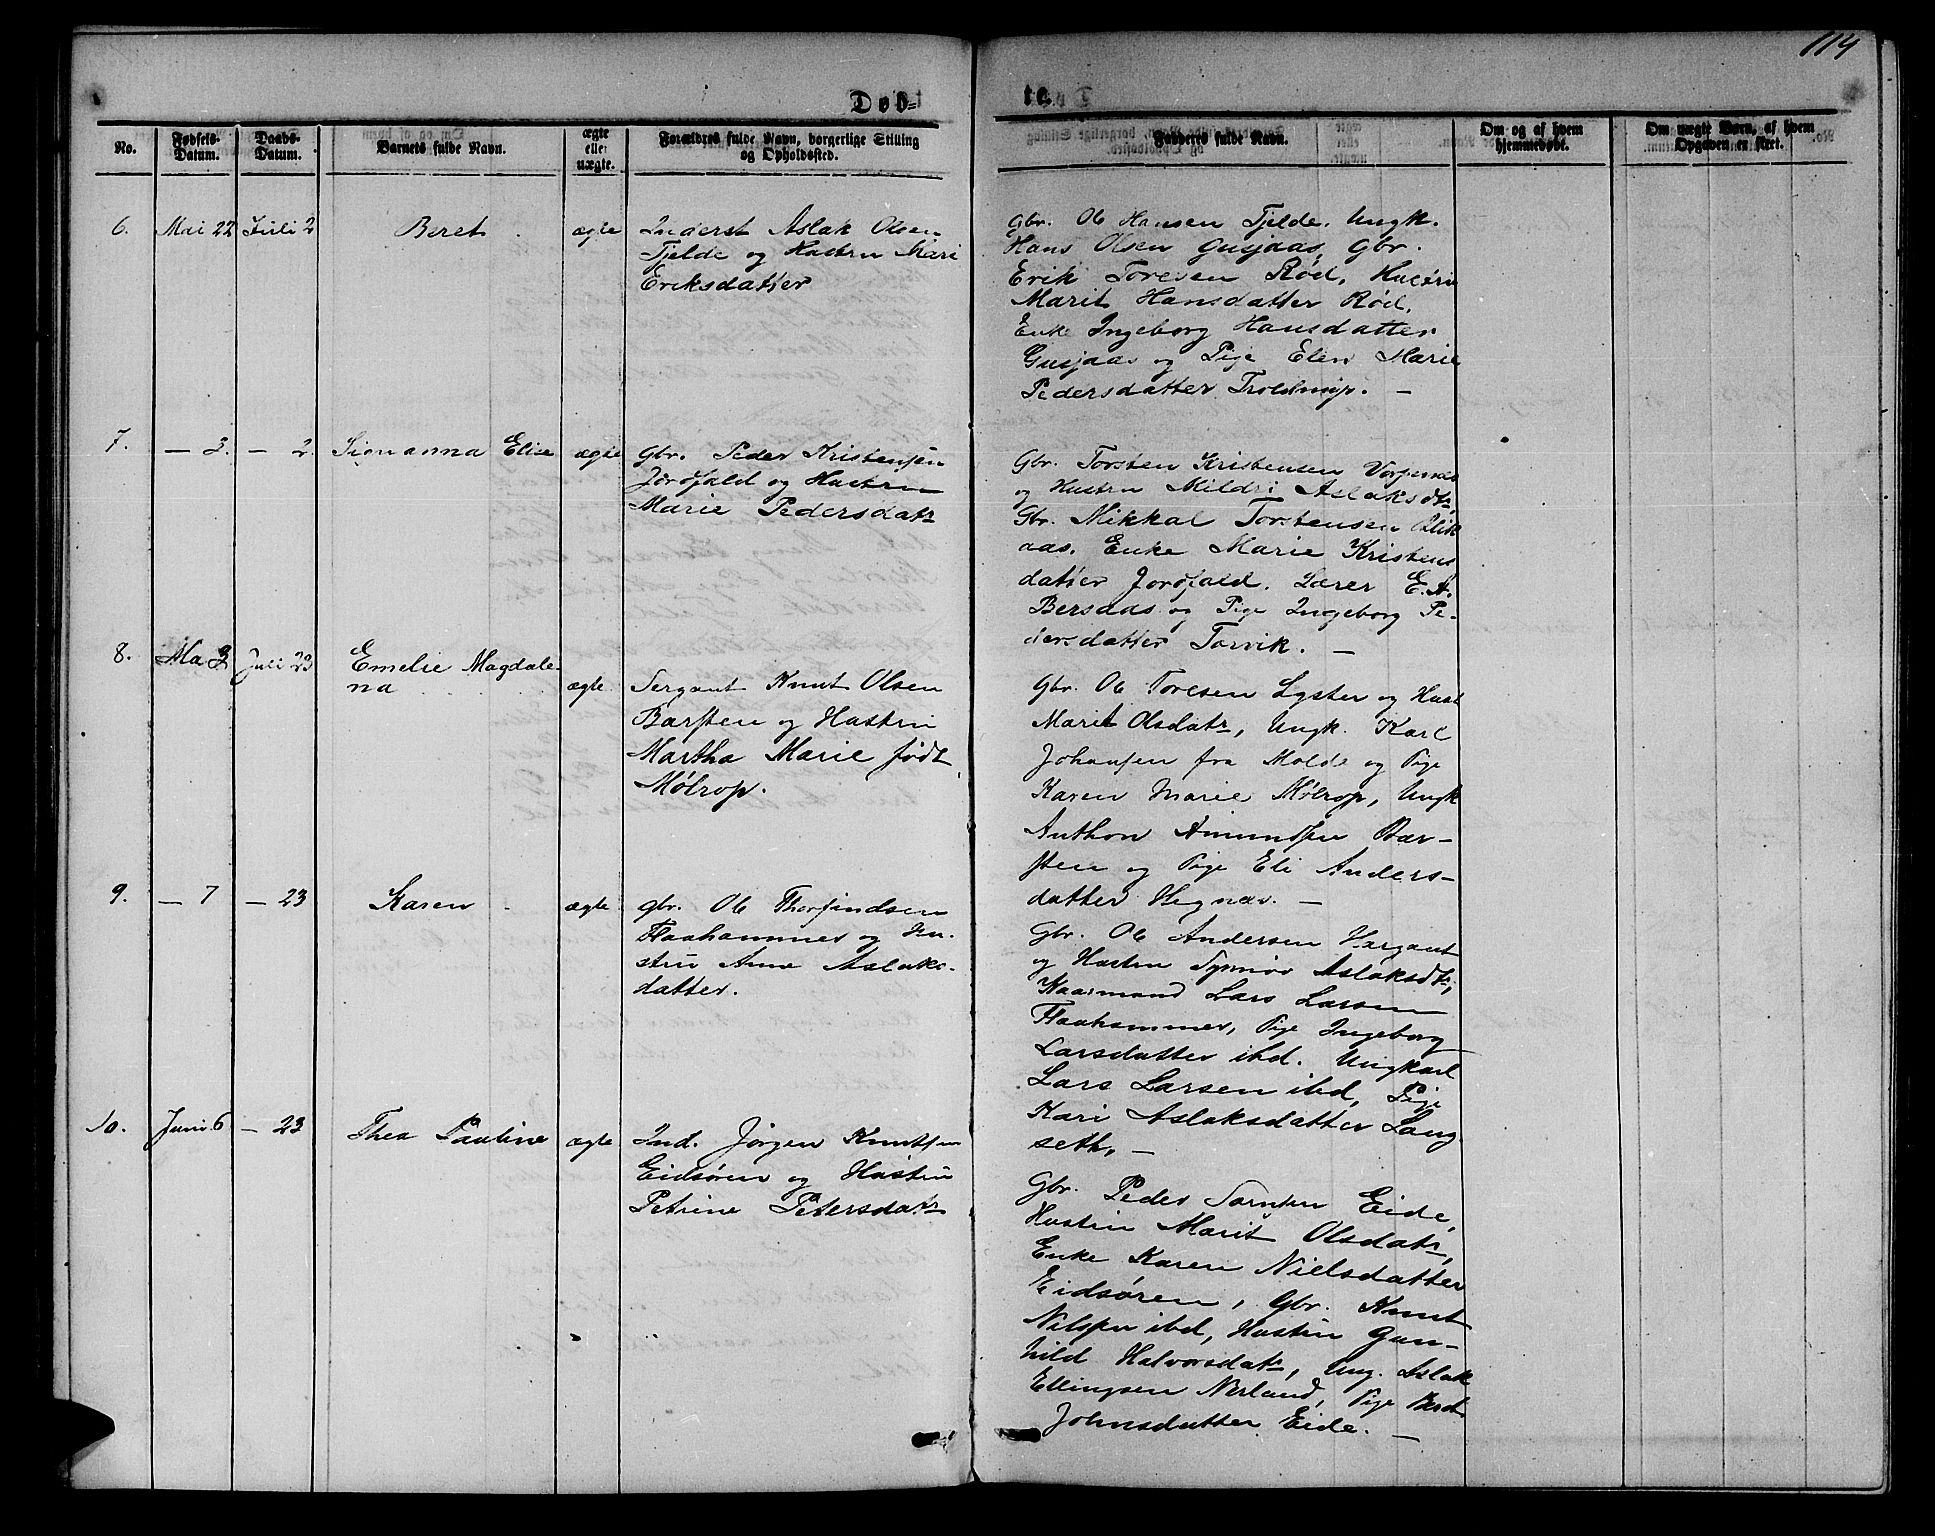 114
Døb-
te.
No.
Fødsels-
Datum.
Daabs-
Datum.
Barnets fulde Navn.
ægte
elle
uægte.
Forældres fulde Navn, borgerlige Stilling
og Opholdssted.
Fadderes fulde Navn.
Om og af hvem
hjemmedøbt.
Om uægte Børn, af hvem
Opgaven er skeet.
6. Mai 22 Juli 2 Beret ægte
Inderst Aslak Olsen
Tjelde og Hustru Mari
Eriksdatter
Gbr. Ole Hansen Tjelde, Ungk.
Hans Olsen Gusjaas, Gbr.
Erik Toresen Rød, Hustru
Marit Hansdatter Rød,
Enke Ingeborg Hansdatter
Gusjaas og Pige Elen Marie
Pedersdatter Troldnup. —
7. — 3. — 2. Signanna Elise ægte
Gbr. Peder Kristensen
Jordfald og Hustru
Marie Pedersdatr
Gbr. Torsten Kristensen Vorpenes
og Hustru Mildri Aslaksdtr,
Gbr. Mikkal Torstensen Blik
aas. Enke Marie Kristens
datter Jordfald. Lærer E. A.
Bersaas og Pige Ingeborg Pe-
dersdatter Torvik. —
8. Mai 3 Juli 23 Emelie Magdale-
na ægte
Sergant Knut Olsen
Barsten og Hustru
Martha Marie født
Møltrop.
Gbr. Ole Toresen Lyster og Hust
Marit Olsdatr, Ungk. Karl
Johansen fra Molde og Pige
Karen Marie Møtrop, Ungk
Anthon Amundsen Bar-
sten og Pige Eli Anders-
datter Hegnæs. —
9. — 7 — 23 Karen ægte
gbr. Ole Thorfindsen
Flaahammer og Hu-
stru Anne Aslaks-
datter.
Gbr. Ole Andersen Hargaut
og Hustru Synnøv Aslaksdtr,
Kaarmand Lars Larsen
Flaahammer, Pige Ingeborg
Larsdatter ibd. Ungkarl
Lars Larsen ibd, Pige
Kari Aslaksdatter Lang
seth. —
10. Juni 6 — 23 Thea Pauline ægte
Ind. Jørgen Knutsen
Eidsøren og Hustru
Petrine Petersdatr
Gbr. Peder Eide,
Hustru Marit Olsdatr,
Enke Karen Nielsdatter
Eidsøren, Gbr. Knut
Nilsen ibd, Hustru Gun-
hild Halvorsdatr, Ung. Aslak
Ellingsen Nerland, Pige Beret
Johnsdatter Eide. —